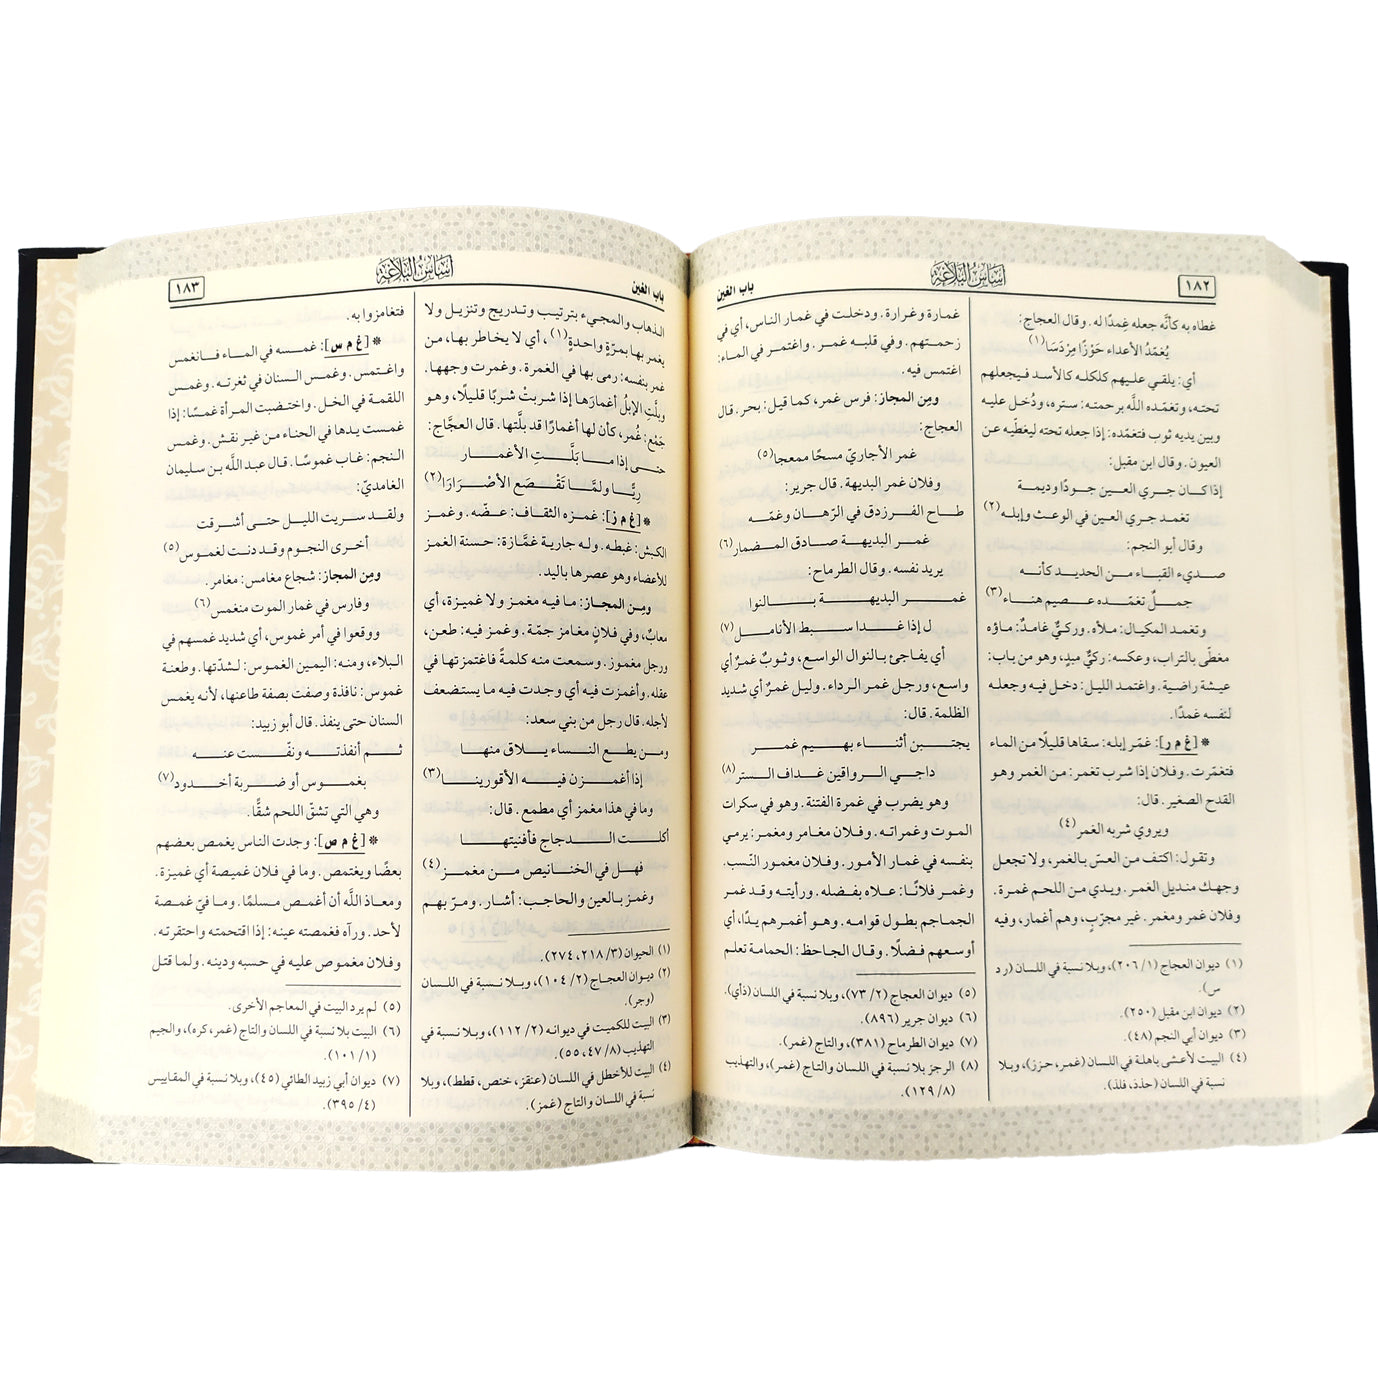 ١٨٢
أساس البلاغة
باب الغين
غطاه به كأنَّه جعله غِمدًا له. وقال العجاج:
يُغمّدُ الأعداء حَوْزًا مِرْدَسَا(١)
أي: يلقي عليهم كلكله كالأسد فيجعلهم
تحته، وتغمّده اللَّه برحمته: ستره، ودُخل عليه
وبين يديه ثوب فتغمّده: إذا جعله تحته ليغطّيه عن
العيون. وقال ابن مقبل:
إذا كان جري العين جودًا وديمة
تغمد جري العين في الوعث وإبله(٢)
وقال أبو النجم:
صديء القباء من الحديد كأنه
جملٌ تغمّده عصيم هناء(٣)
وتغمد المكيال: ملأه. وركيٌّ غامدٌ: ماؤه
مغطّى بالتراب، وعكسه: ركيٌّ مبدٍ، وهو من باب:
عيشة راضية. واغتمد الليل: دخل فيه وجعله
لنفسه غمدًا.
* [غ م ر]: غمّر إبله: سقاها قليلًا من الماء
فتغمّرت. وفلان إذا شرب تغمر: من الغمر وهو
القدح الصغير. قال:
ويروي شربه الغمر(٤)
وتقول: اكتف من العسّ بالغمر، ولا تجعل
وجهك منديل الغمر. ويدي من اللحم غمرة.
وفلان غمر ومغمر. غير مجرّبٍ، وهم أغمار، وفيه
(١) ديوان العجاج (١/ ٢٠٦)، وبلا نسبة في اللسان (رد
س).
(٢) ديوان ابن مقبل (٢٥٠).
(٣) ديوان أبي النجم (٤٨).
(٤) البيت لأعشى باهلة في اللسان (غمر، حزز)، وبلا
نسبة في اللسان (حذذ، فلذ).
غمارة وغرارة. ودخلت في غمار الناس، أي في
زحمتهم. وفي قلبه غمر. واغتمر في الماء:
اغتمس فيه.
ومِن المجاز: فرس غمر، كما قيل: بحر. قال
العجاج:
غمر الأجاريّ مسحًا ممعجا(٥)
وفلان غمر البديهة. قال جرير:
طاح الفرزدق في الرّهان وغمّه
غمر البديهة صادق المضمار(٦)
يريد نفسه. وقال الطرماح:
غمر البديهة بالنوا
ل إذا غدا سبط الأنامل(٧)
أي يفاجئ بالنوال الواسع، وثوبٌ غمرٌ أي
واسع، ورجل غمر الرداء. وليل غمرٌ أي شديد
الظلمة. قال:
يجتبن أثناء بهيم غمر
داجي الرواقين غداف الستر(٨)
وهو يضرب في غمرة الفتنة. وهو في سكرات
الموت وغمراته. وفلان مغامر ومغمر: يرمي
بنفسه في غمار الأمور. وفلان مغمور النّسب.
وغمر فلانًا: علاه بفضله. ورأيته وقد غمر
الجماجم بطول قوامه. وهو أغمرهم يدًا، أي
أوسعهم فضلًا. وقال الجاحظ: الحمامة تعلم
(٥) ديوان العجاج (٢/ ٧٣)، وبلا نسبة في اللسان (ذأي).
(٦) ديوان جرير (٨٩٦).
(٧) ديوان الطرماح (٣٨١)، والتاج (غمر).
(٨) الرجز بلا نسبة في اللسان والتاج (غمر)، والتهذيب
(٨/ ١٢٩).
باب الغين
أساس البلاغة
١٨٣
الذهاب والمجيء بترتيب وتدريج وتنزيل ولا
يغمر بها بمرّةٍ واحدةٍ(١)، أي لا يخاطر بها، من
غمر بنفسه: رمى بها في الغمرة. وغمرت وجهها.
وبلّتِ الإبلُ أغمارَها إذا شربتْ شربًا قليلًا، وهو
جَمْع: غُمر، كأن لها أغمارًا قد بلّتها. قال العجَّاج:
حتى إذا ما بَلَّتِ الأغمار
رِيًّا ولمَّا تَقْصَعِ الأصْرَارَا(٢)
* [غ م ز]: غمزه الثقاف: عضّه. وغمز
الكبش: غبطه. وله جارية غمَّازة: حسنة الغمز
للأعضاء وهو عصرها باليد.
ومِن المجاز: ما فيه مغمز ولا غميزة، أي
معابٌ، وفي فلانٍ مغامز جمّة. وغمز فيه: طعن،
ورجل مغموز. وسمعت منه كلمةً فاغتمزتها في
عقله. وأغمزت فيه أي وجدت فيه ما يستضعف
لأجله. قال رجل من بني سعد:
ومن يطع النساء يلاق منها
إذا أغمزن فيه الأقورينا(٣)
وما في هذا مغمز أي مطمع. قال:
أكلت الدجاج فأفنيتها
فهل في الخنانيص من مغمز(٤)
وغمز بالعين والحاجب: أشار. ومرّ بهم
(١) الحيوان (٣/ ٢١٨، ٢٧٤).
(٢) ديوان العجاج (٢/ ١٠٤)، وبلا نسبة في اللسان
(وجر).
(٣) البيت للكميت في ديوانه (٢/ ١١٢)، وبلا نسبة في
التهذيب (٨/ ٤٧، ٥٥).
(٤) البيت للأخطل في اللسان (عنقز، خنص، قطط)، وبلا
نسبة في اللسان والتاج (غمز).
فتغامزوا به.
* [غ م س]: غمسه في الماء فانغمس
واغتمس. وغمس السنان في ثغرته. وغمس
اللقمة في الخل. واختضبت المرأة غمسًا: إذا
غمست يدها في الحناء من غير نقش. وغمس
النجم: غاب غموسًا. قال عبد اللَّه بن سليمان
الغامديّ:
ولقد سريت الليل حتى أشرقت
أخرى النجوم وقد دنت لغموس(٥)
ومِن المجاز: شجاع مغامس: مغامر.
وفارس في غمار الموت منغمس(٦)
ووقعوا في أمر غموس، أي شديد غمسهم في
البلاء، ومنه: اليمين الغموس: لشدّتها. وطعنة
غموس: نافذة وصفت بصفة طاعنها، لأنه يغمس
السنان حتى ينفذ. قال أبو زبيد:
ثم أنفذته ونفّست عنه
بغموس أو ضربة أخدود(٧)
وهي التي تشقّ اللحم شقًّا.
* [غ م ص]: وجدت الناس يغمص بعضهم
بعضًا ويغتمص. وما في فلان غميصة أي غميزة.
ومعاذ اللَّه أن أغمص مسلمًا. وما فيّ غمصة
لأحد. ورآه فغمصته عينه: إذا اقتحمته واحتقرته.
وفلان مغموص عليه في حسبه ودينه. ولما قتل
(٥) لم يرد البيت في المعاجم الأخرى.
(٦) البيت بلا نسبة في اللسان والتاج (غمر، كره)، والجيم
(١/ ١٠١).
(٧) ديوان أبي زبيد الطائي (٤٥)، وبلا نسبة في المقاييس
(٤/ ٣٩٥).